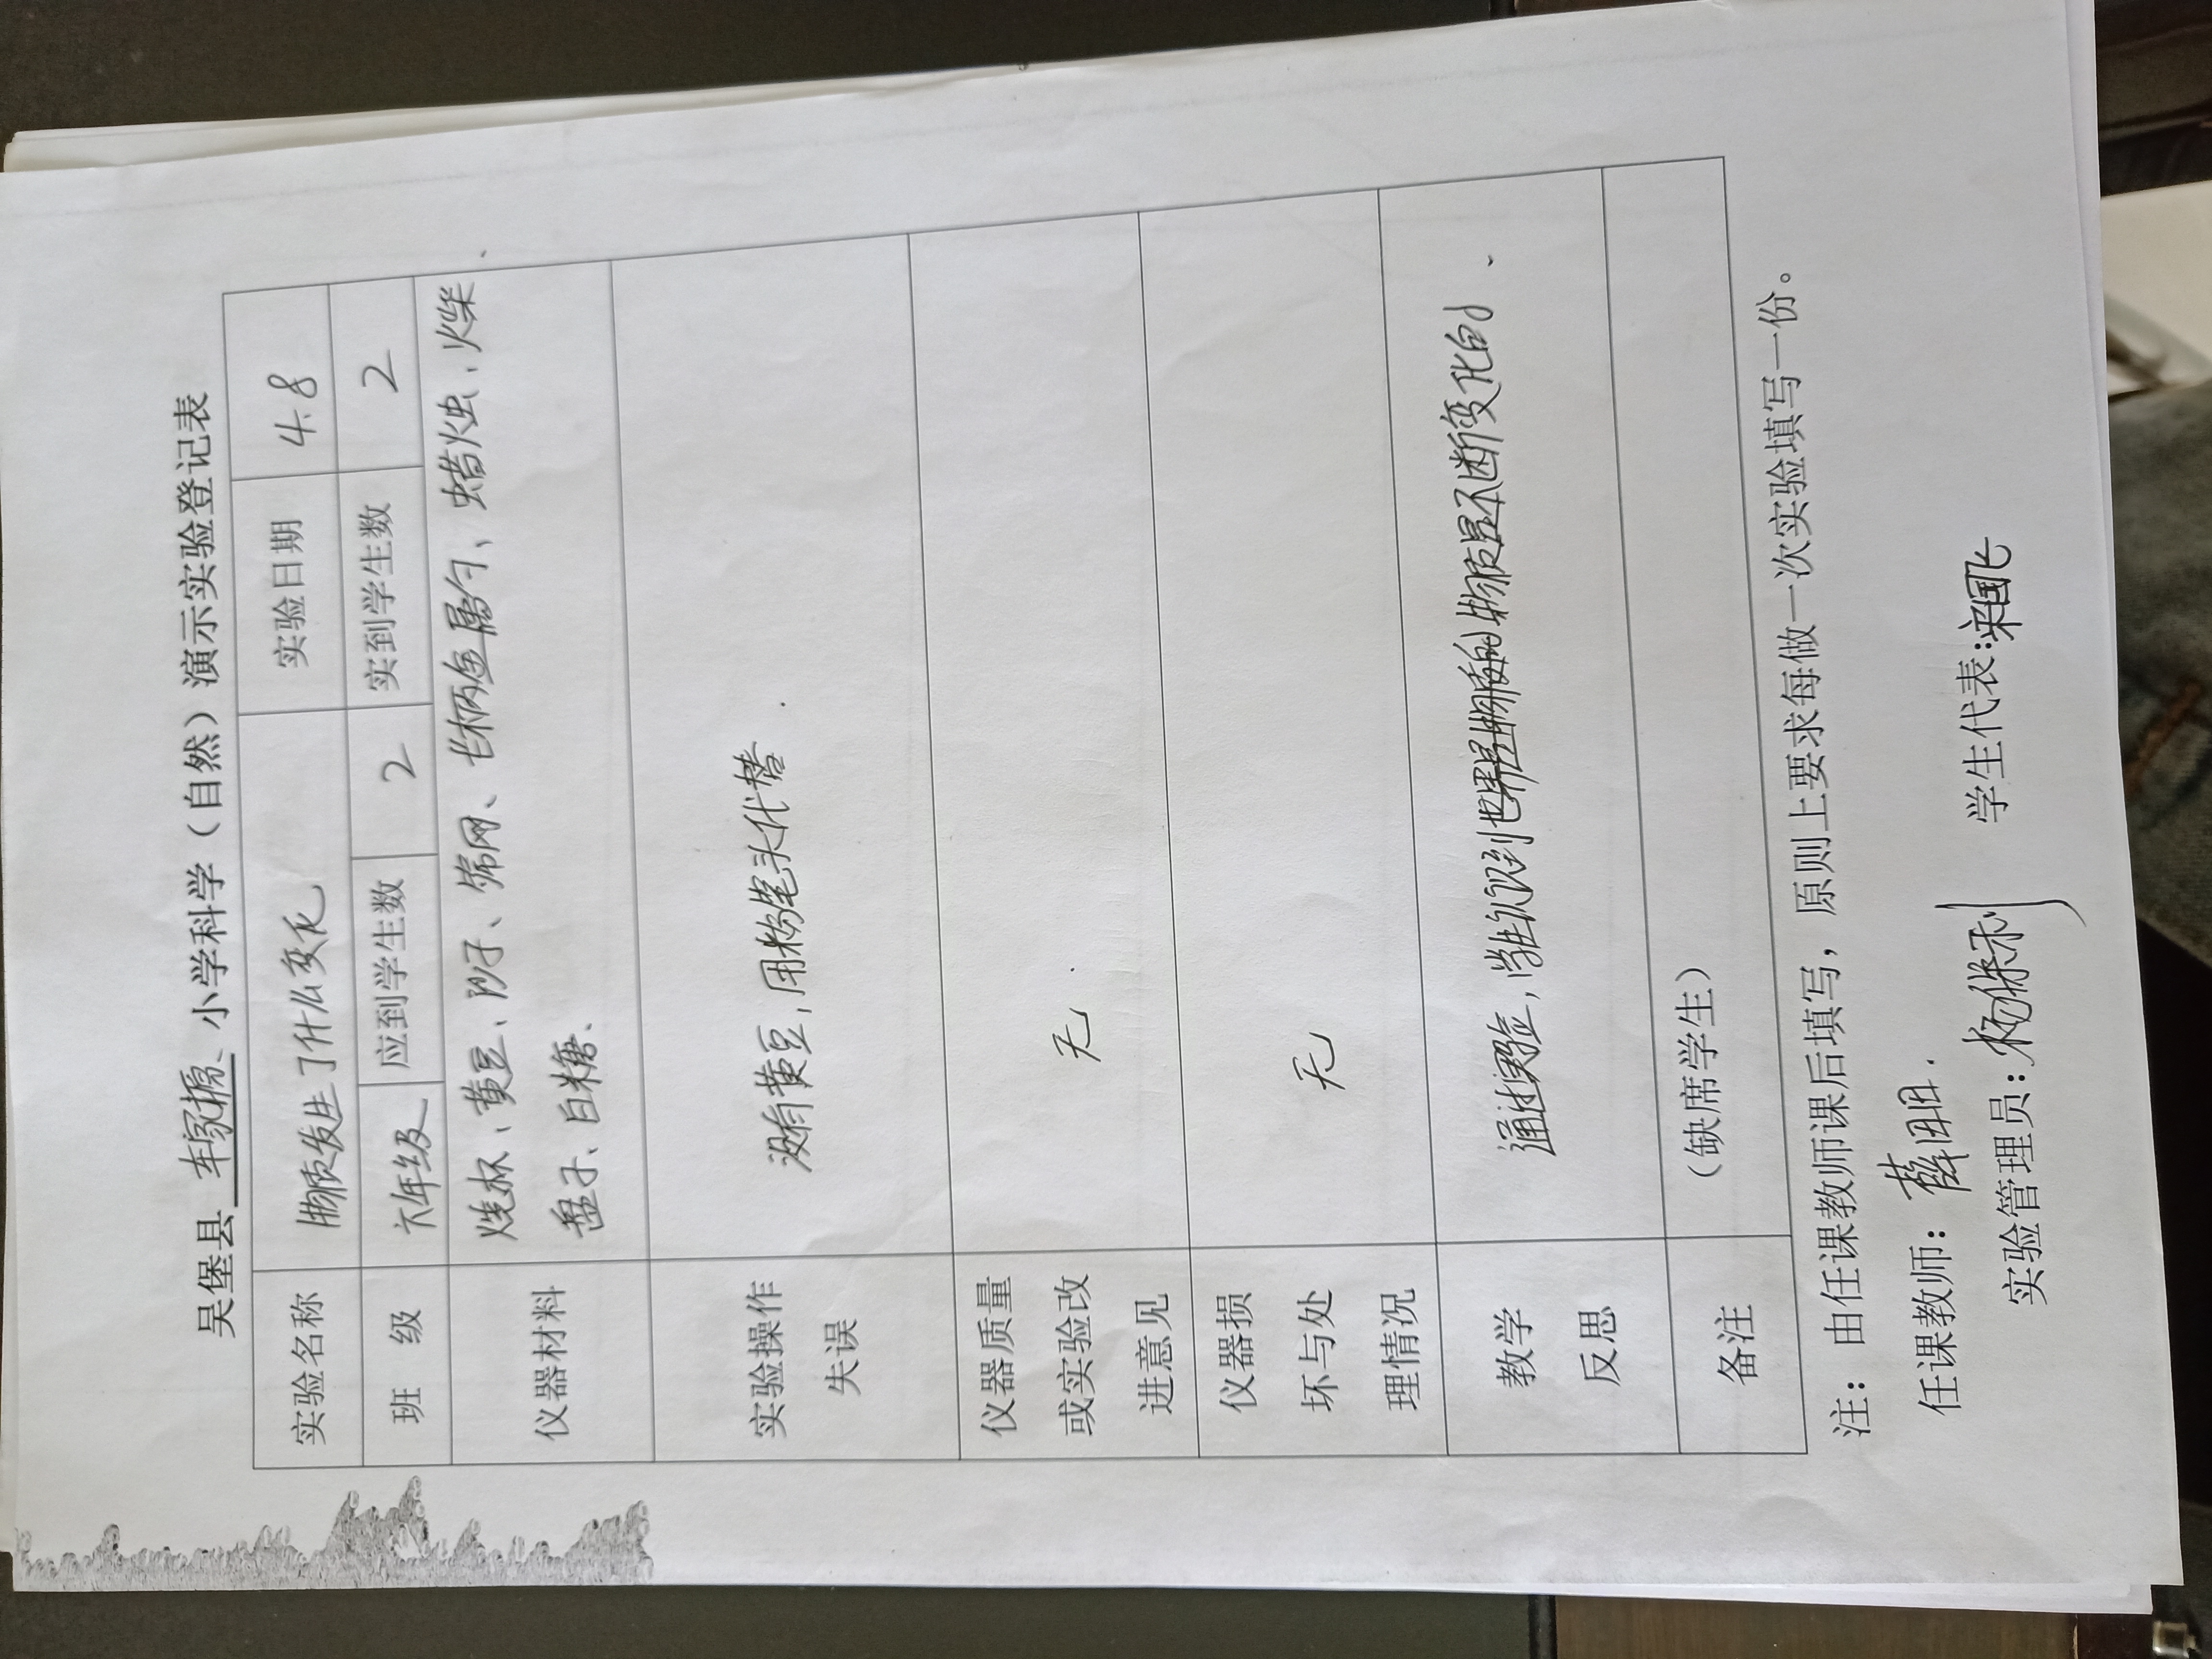 吴堡县 车家塬 小学科学（自然）演示实验登记表
实验名称 物质发生了什么变化 实验日期 4.8
班 级 六年级 应到学生数 2 实到学生数 2
仪器材料 烧杯、黄豆、沙子、筛网、长柄金属勺、蜡烛、火柴
盘子、白糖、
实验操作
失误
没有黄豆，用粉笔头代替.
仪器质量
或实验改
进意见
无.
仪器损
坏与处
理情况
无
教学
反思
通过实验，学生认识到世界是由物质构成的物质是不断变化的.
备注 （缺席学生）
注：由任课教师课后填写，原则上要求每做一次实验填写一份。
任课教师：薛
实验管理员：杨保利 学生代表：宋国飞